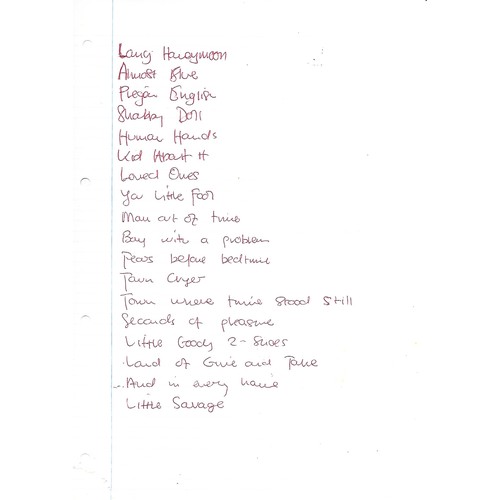 Long Honeymoon
Almost Blue
Pidgin English
Shabby Doll
Human Hands
Kid About It
Loved Ones
You Little Fool
Man out of time
Boy with a problem
Tears before bedtime
Town Cryer
Town where time stood still
Seconds of pleasure
Little Goody 2-Shoes
Land of Give and Take
...And in every home
Little Savage